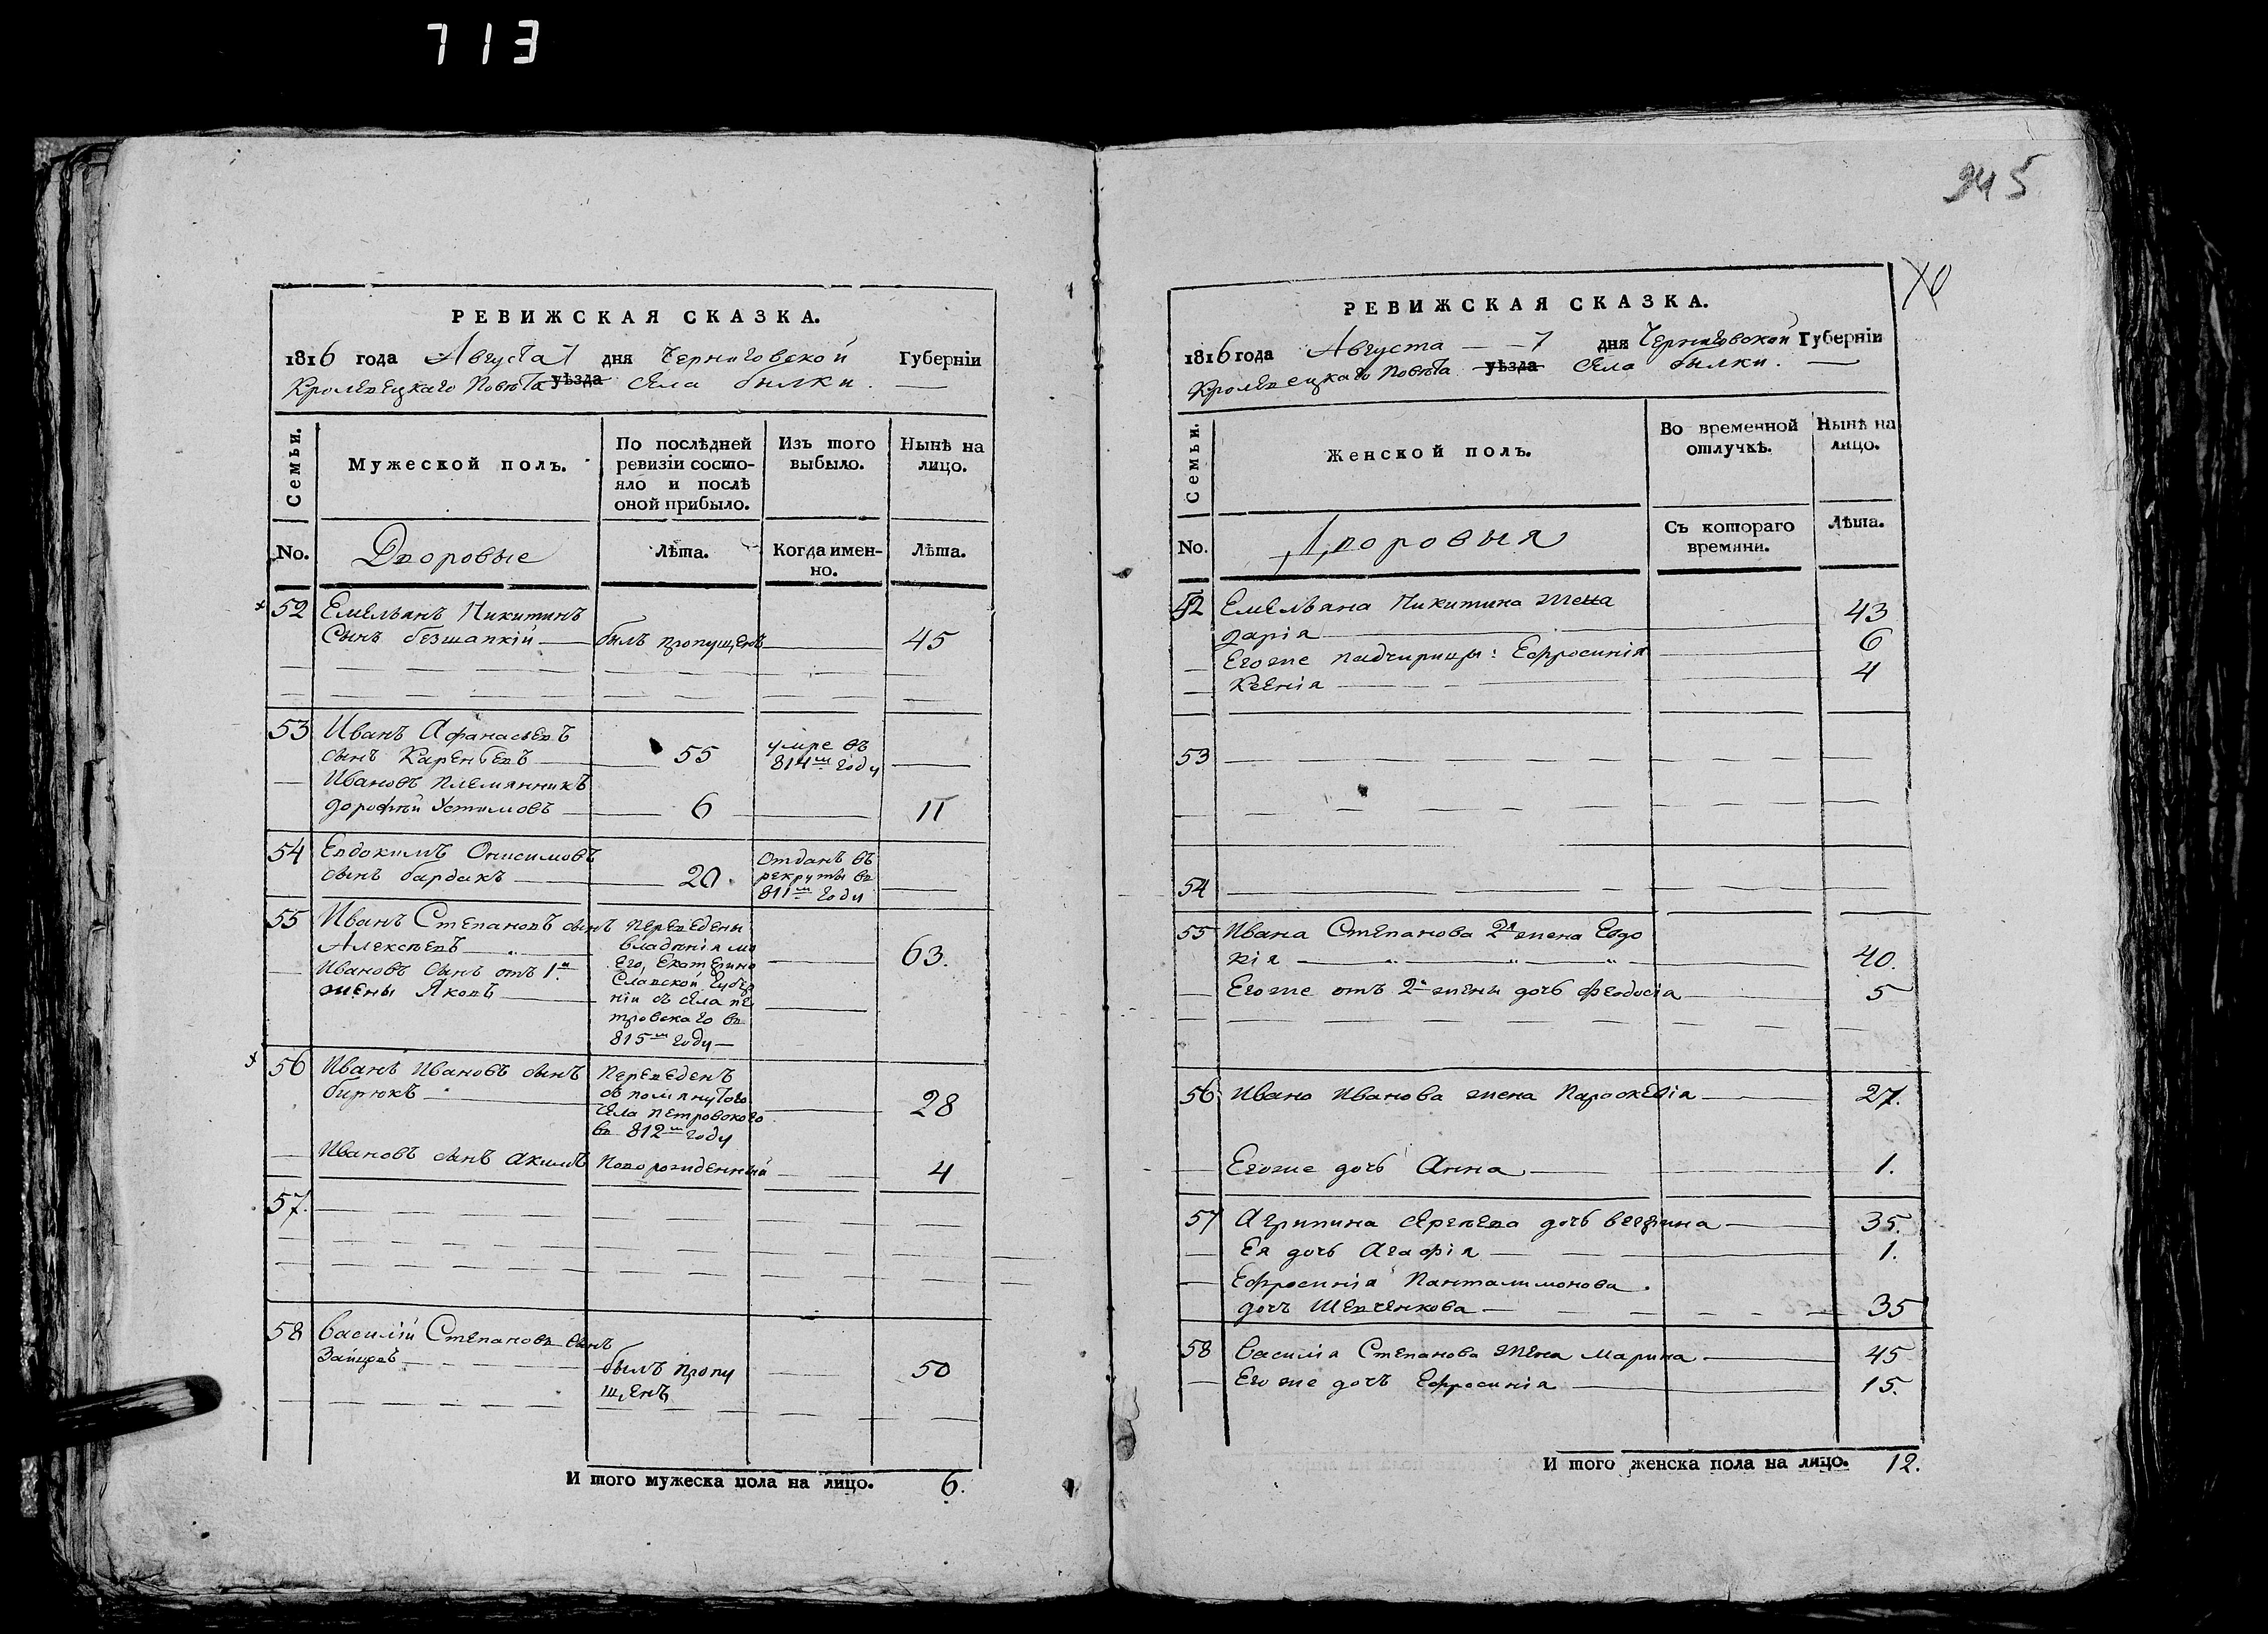 713
945
РЕВИЖСКАЯ СКАЗКА.
1816 года Августа 7 дня Черниговской Губерніи
Кролевецкаго Повѣта уѣзда Села билки.
Семьи.
Мужеской полъ.
По послѣдней ревизіи состо-
яло и послѣ
оной прибыло.
Изъ того
выбыло.
Нынѣ на
лицо.
No.
Дворовые
Лѣта.
Когда имен-
но.
Лѣта.
52 Емельянъ Никитинъ
Сынъ безшапкій былъ пропущенъ 45
53 Иванъ Афанасьевъ
сынъ Каренбевъ 55 умре въ
814м году
Ивановъ племянникъ
дорофѣй Устимовъ 6 11
54 Евдокимъ Онисимовъ
сынъ бардакъ 20 отданъ въ
рекруты въ
811м году
55 Иванъ Степановъ сынъ переведены
Алексѣевъ владѣнія мо
его, Екатерино 63.
Ивановъ сынъ отъ 1й
славской губер
жены Яковъ
ніи съ села пе
тровскаго въ
815м году
56 Иванъ Ивановъ сынъ переведенъ
бирюкъ
съ помянутого
села петровского 28
въ 812м году
Ивановъ сынъ Акимъ новорожденный 4
57.
58 Василій Степановъ сынъ
Зайцовъ былъ пропу
щенъ 50
И того мужеска пола на лицо. 6.
РЕВИЖСКАЯ СКАЗКА.
1816 года Августа 7 дня Черниговской Губерніи
Кролевецкаго Повѣта уѣзда Села билки.
Семьи.
Женской полъ.
Во временной
отлучкѣ.
Нынѣ на
лицо.
No.
Дворовыя
Съ котораго
времяни.
Лѣта.
52 Емельяна Никитина жена
дарія 43
Егоже падчирицы: Ефросинія 6
Ксенія 4
53
54
55 Ивана Степанова 2я жена Евдо
кія 40.
Егоже отъ 2й жены дочь Феодосія 5
56 Ивано Иванова жена Параскевія 27.
Егоже дочь Анна 1.
57 Агрипина дочь 35.
Ея дочь Агафія 1.
Ефросинія Панталимонова
дочъ Шевченкова 35
58 Василія Степанова жена Марина 45
Егоже дочъ Ефросинія 15.
И того женска пола на лицо. 12.